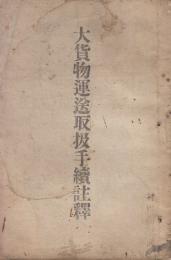 大貨物運送取扱手續註釋